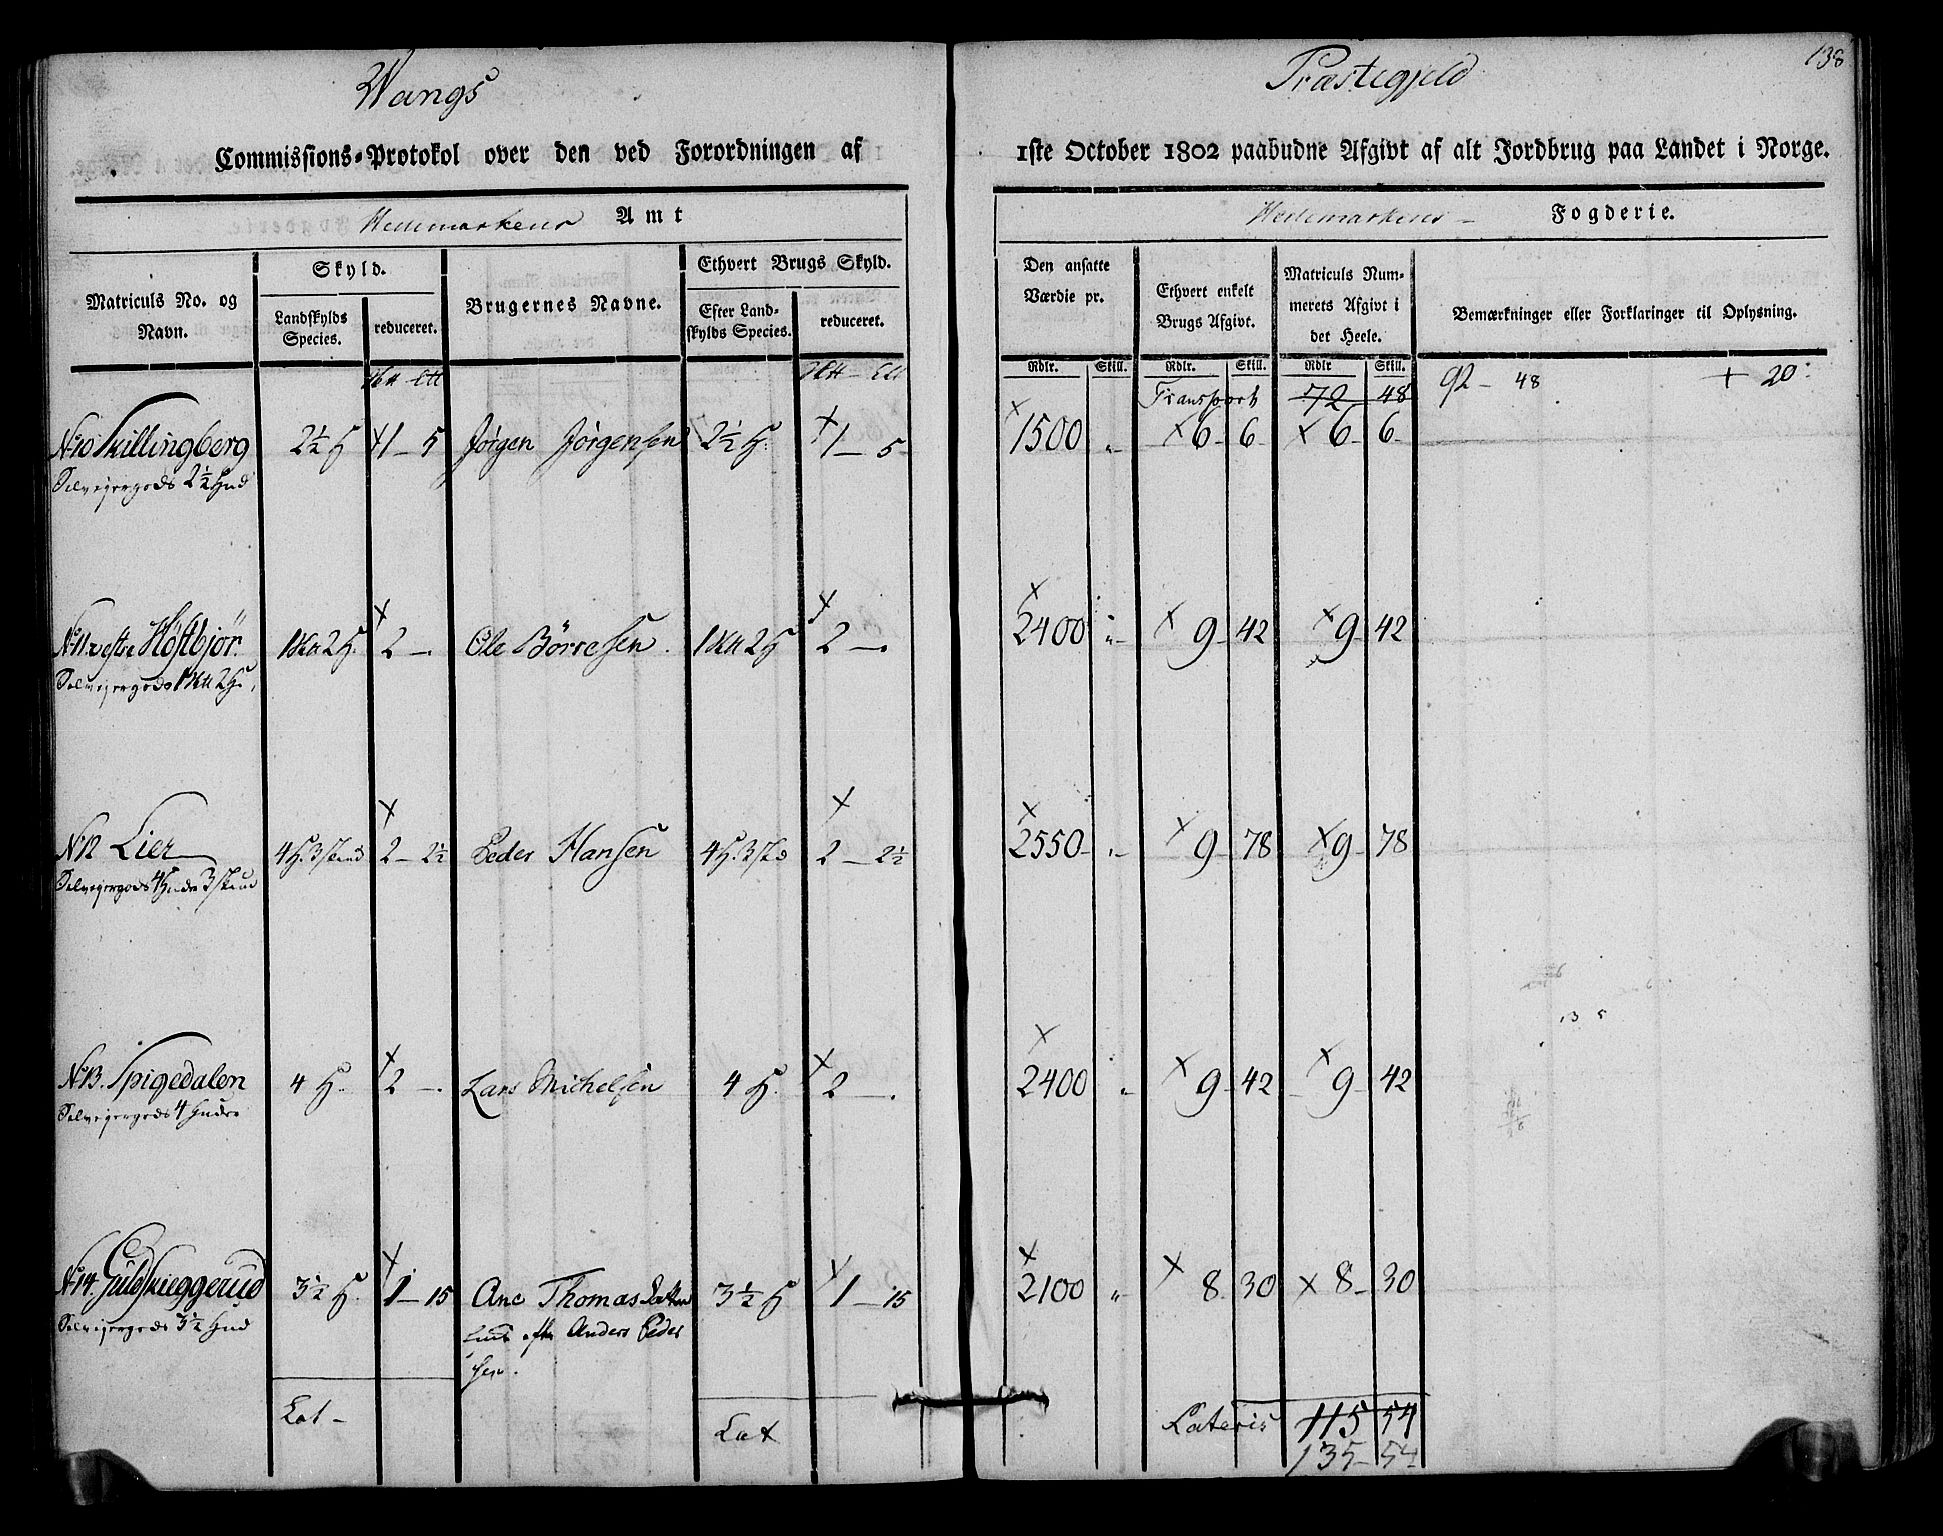 Wangs Præstegjeld 138
Commissions-Protokol over den ved Forordningen af 1ste October 1802 paabudne Afgivt af alt Jordbrug paa Landet i Norge.
Hedemarkens Amt Hedemarkens Fogderie.
Matriculs No. og Navn.
Skyld.
Landskylds Species.
reduceret.
Brugernes Navne.
Ethvert Brugs Skyld.
Efter Landskylds Species.
reduceret.
Den ansatte Værdie pr.
Ethvert enkelt Brugs Afgivt.
Matriculs Nummerets Afgivt i det Heele.
Bemærkninger eller Forklaringer til Oplysning.
Rdlr. Skill. Rdlr. Skill. Rdlr Skill.
Transport 72 48 92 - 48 + 20
No 10 Skillingberg 2½ H 1 - 5 Jørgen Jørgensen 2½ H. 1 - 5 1500 „ 6 6 6 6
Selveiergods 2½ Hud
No 11 vestre Høstbjør 2 - Ole Børresen 2 - 2400 „ 9 - 42 9 42
Selveiergods
No 12 Lier 2 - 2½ Peder Hansen 2 - 2½ 2550 „ 9 - 78 9 - 78
Selveiergods 4 Huder 3 skind
No 13. Spigedalen 4 H. 2 - Lars Michelsen 4 H. 2 - 2400 „ 9 - 42 9 - 42
Selveiergods 4 Huder
No 14. Guldskieggerud 3½ H. 1 - 15 Ane Thomasdatter 3½ H 1 - 15 2100 „ 8 30 8 - 30
Selveiergods 3½ Hud efter Anders Peder
sen.
Lat - Lat Lateris 115 54
135 - 54